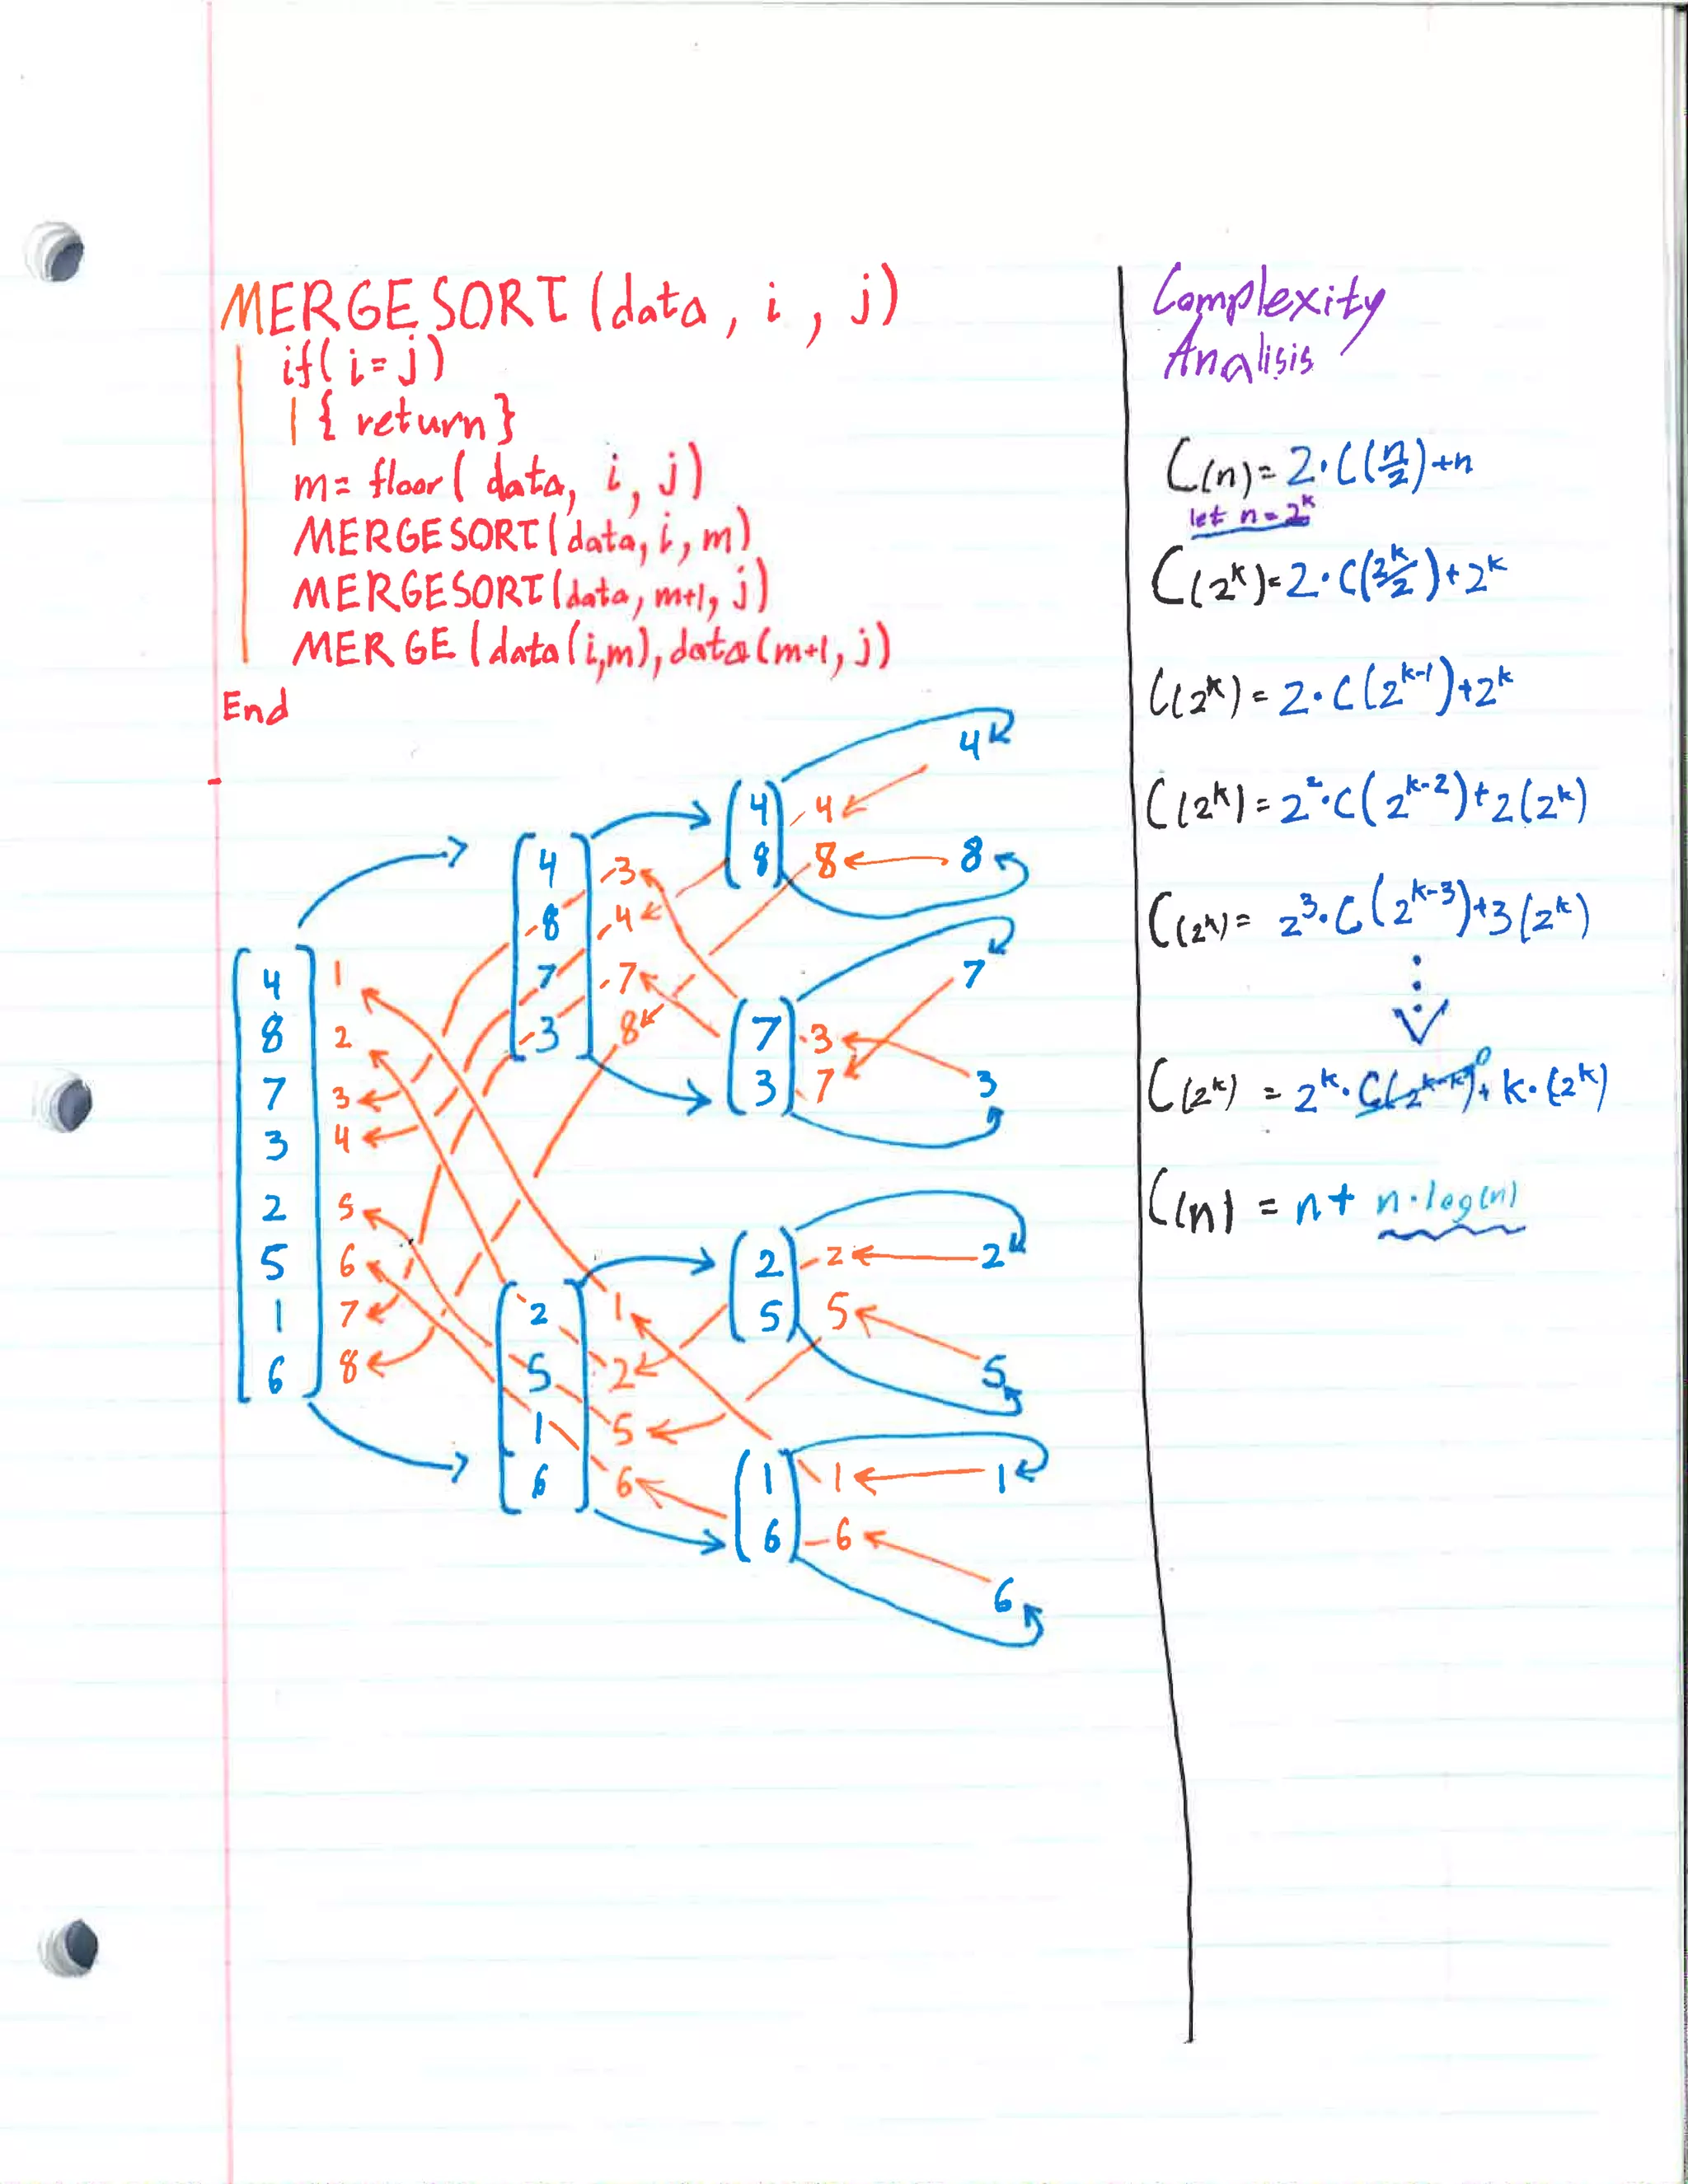 MERGESORT(data, i, j)
if( i=j)
{ return}
m= floor( data, i, j)
MERGESORT(data, i, m)
MERGESORT(data, m+1, j)
MERGE (data(i,m), data(m+1, j)
End
4
8
7
3
2
5
1
6
1
2
3
4
5
6
7
8
4
8
7
3
3
4
7
8
2
5
1
6
1
2
5
6
4
8
4
8
7
3
3
7
2
5
2
5
1
6
1
6
4
8
7
3
2
5
1
6
Complexity
Analisis
C(n)= 2·C(n/2)+n
let n=2^k
C(2^k)=2·C(2^k/2)+2^k
C(2^k)= 2·C(2^{k-1})+2^k
C(2^k)= 2^2·C(2^{k-2})+2(2^k)
C(2^k)= 2^3·C(2^{k-3})+3(2^k)
C(2^k) = 2^k·C(2^{k-k})^0+k·(2^k)
C(n) = n+ n·log(n)